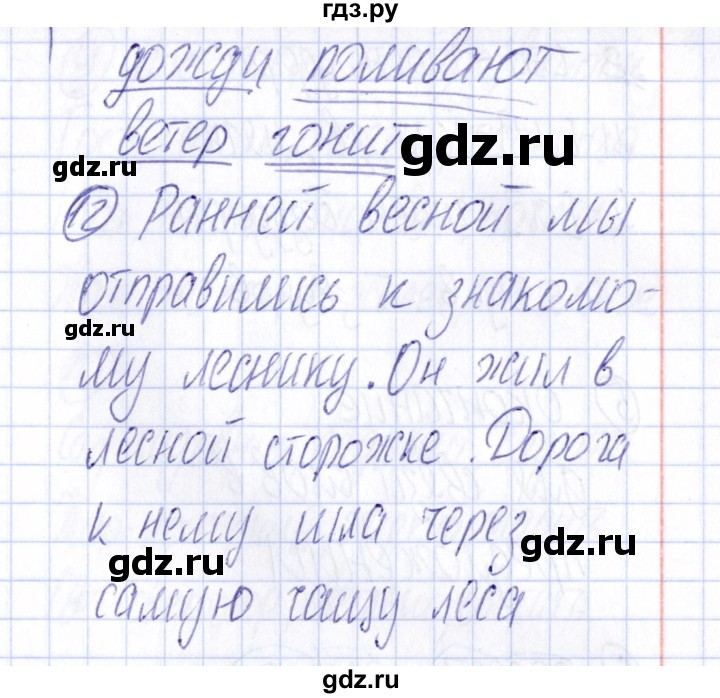 гдз.ру
дожди поливают
ветер гонит
gdz.ru
gdz.ru
12 Ранней весной мы
отправились к знакомо-
gdz.ru
му леснику. Он жил в
лесной сторожке. Дорога
gdz.ru
к нему шла через
gdz.ru
gdz.ru
самую чащу леса
gdz.ru
gdz.ru